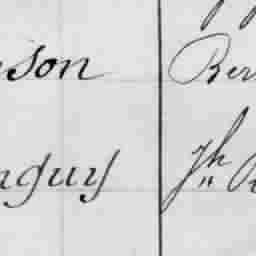 son Ber
nguy Jh